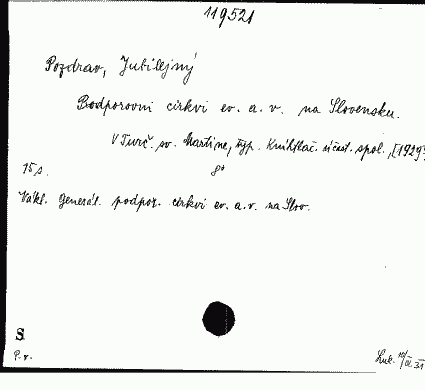 119521
Pozdrav, Jubilejný
Podporovni církvi ev. a. v. na Slovensku.
V Turč. sv. Martine, typ. Kníhtlač. účast. spol., [1929]
15 s. 8°
Nákl. Generál. podpor. církvi ev. a. v. na Slov.
S
P. v.
Luk. 31